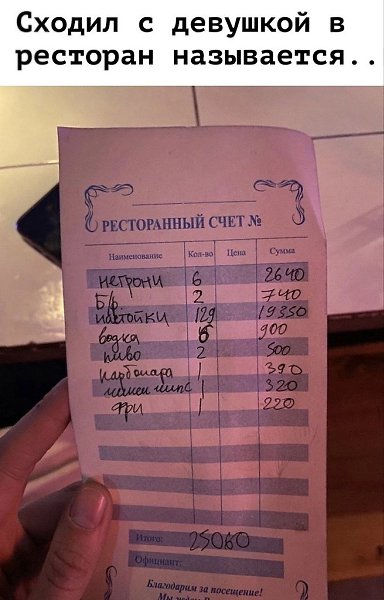 Сходил с девушкой в
ресторан называется..
РЕСТОРАННЫЙ СЧЕТ №
Наименование Кол-во Цена Сумма
негрони 6 2640
Б/р 2 740
настойки 129 19350
водка 6 900
пиво 2 500
карбонара 1 390
1 320
фри 1 220
Итого: 25060
Официант:
Благодарим за посещение!